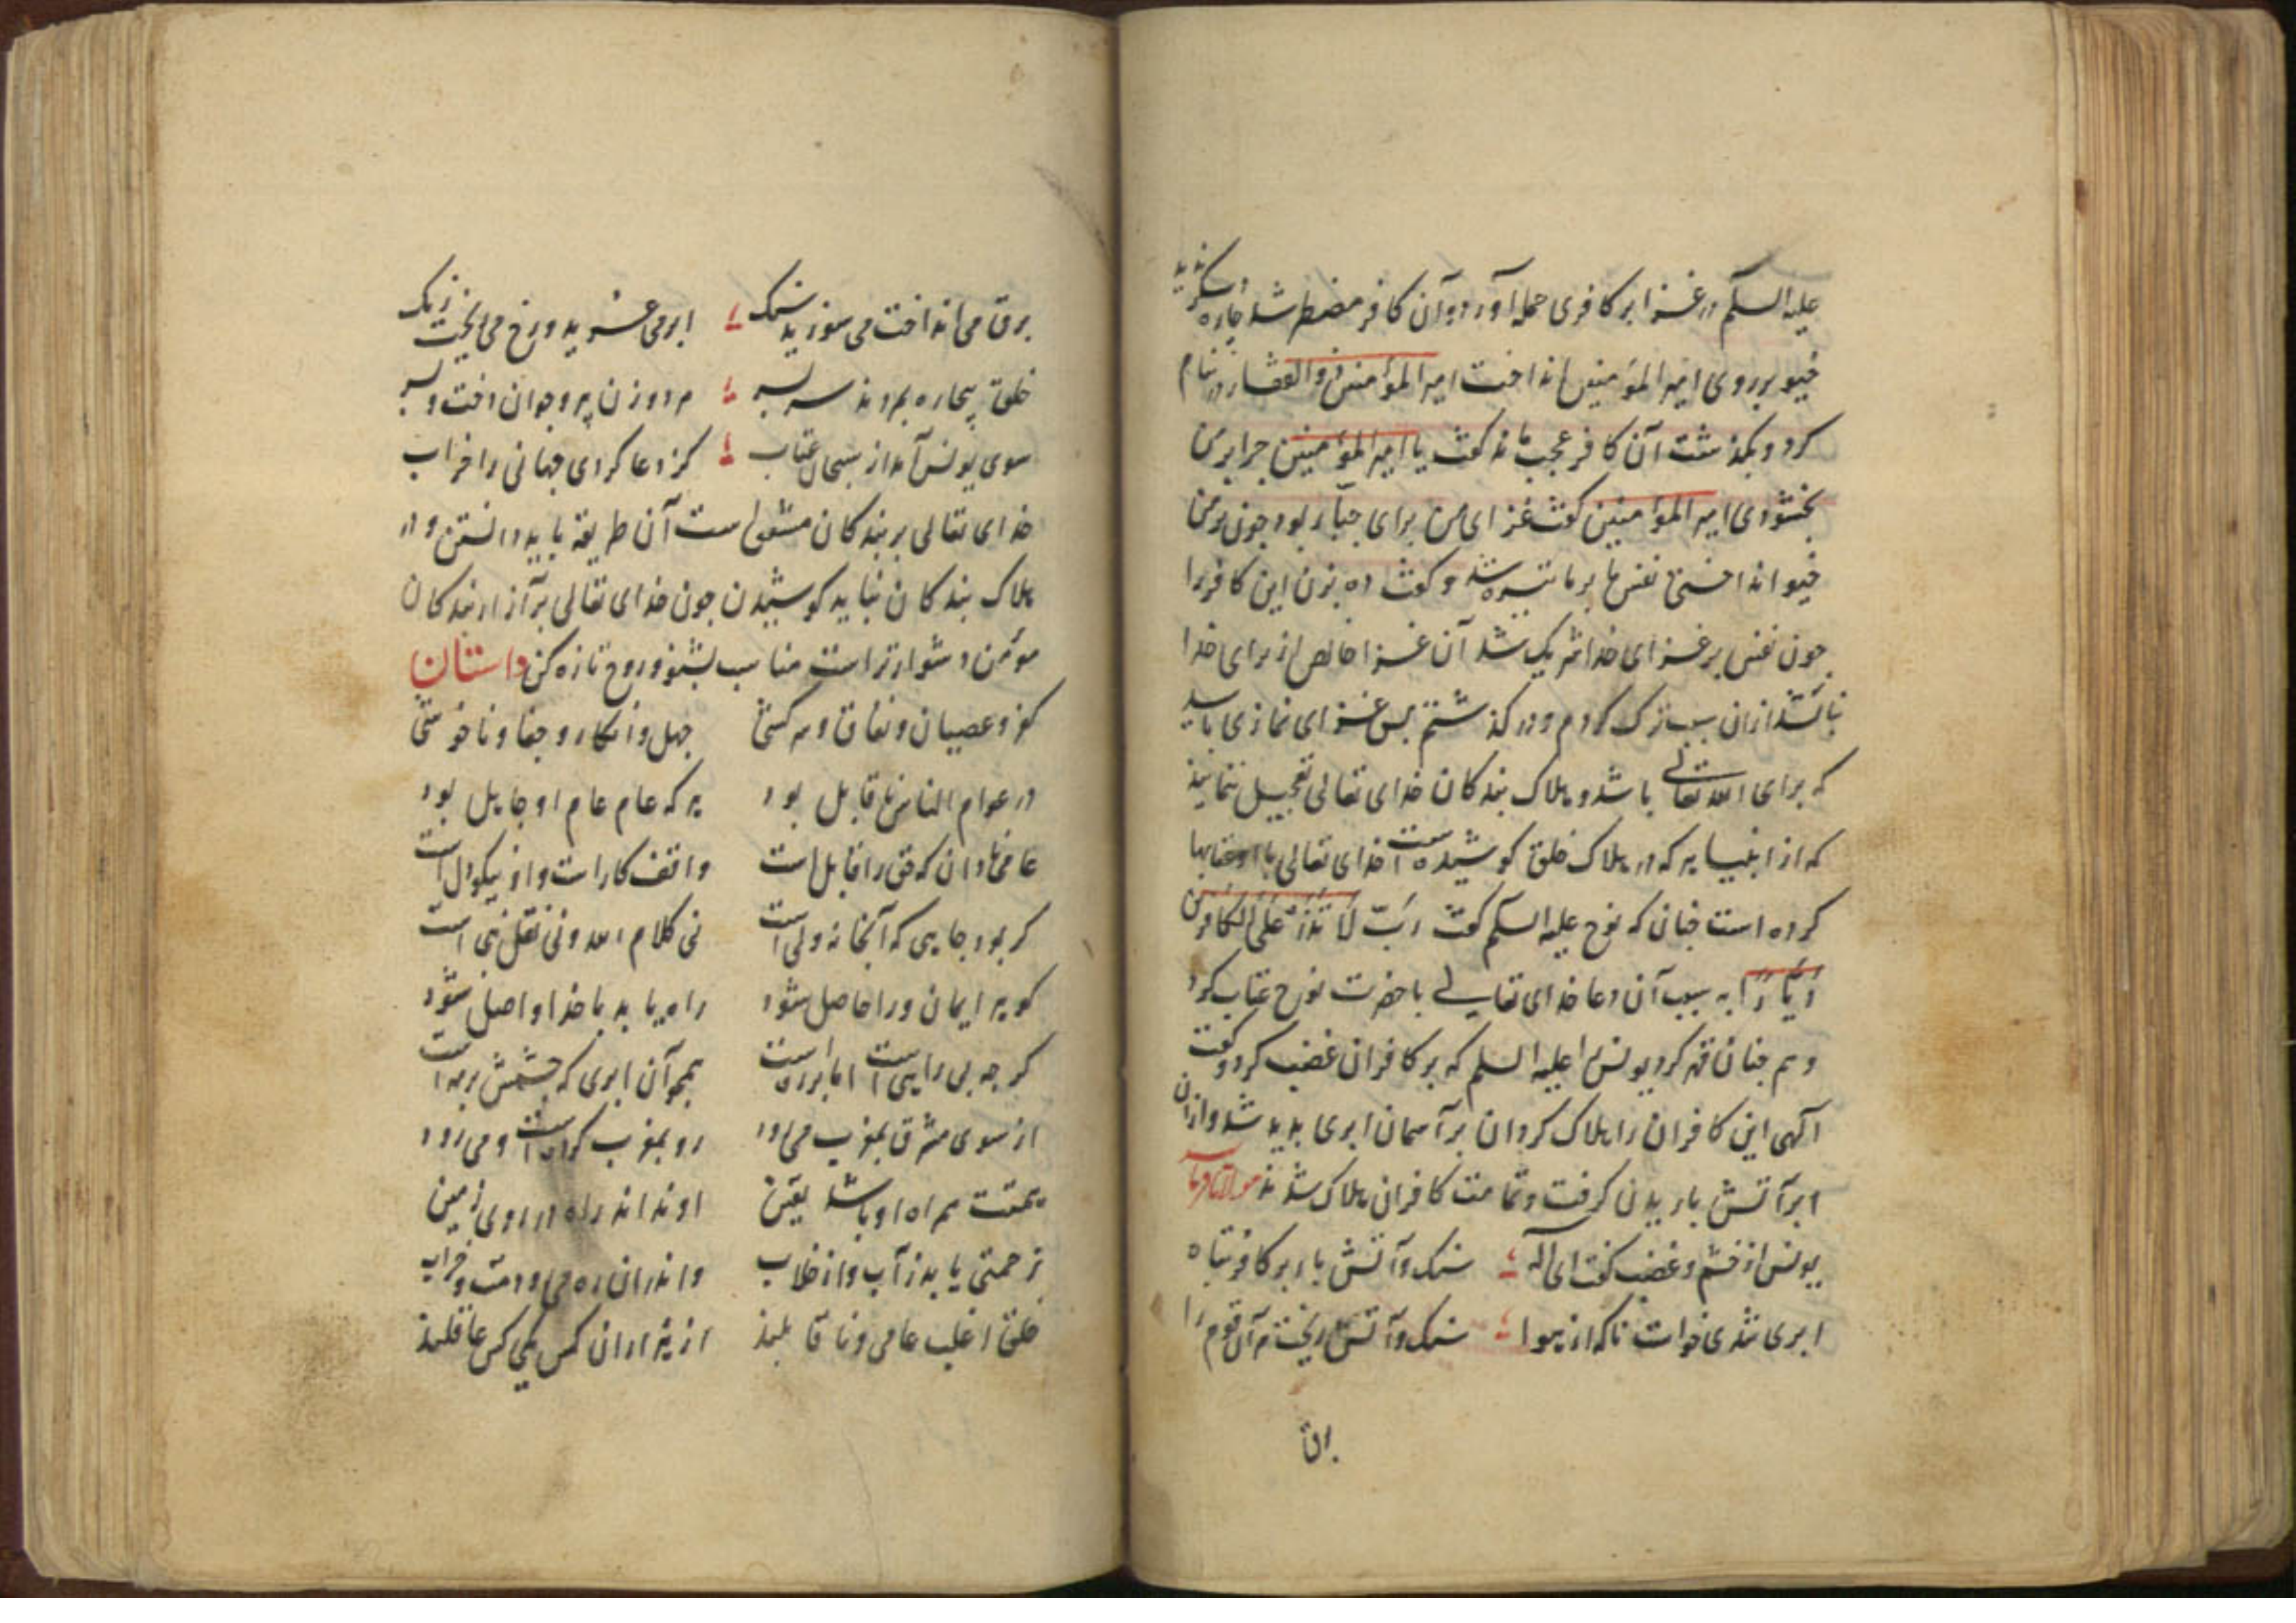 علیه السلم در غزا بر کافری حمله آورد و آن کافر مضطر شد چاره دیگر ندید
خیو بر روی امیر المؤمنین انداخت امیر المؤمنین ذوالفقار در نیام
کرد و بگذشت آن کافر عجب ماند گفت یا امیر المؤمنین چرا بر من
بخشودی امیر المؤمنین گفت غزای من برای جبّار بود چون بر من
خیو انداختی نفس ما بر ما تیره شد و گفت ده بزن این کافر را
چون نفس بر غزای خدا شریک شد آن غزا خالص از برای خدا
نباشد از آن سبب ترک کردم و در گذشتم پس غزای نمازی باید
که برای الله تعالی باشد و هلاک بندکان خدای تعالی تعجیل ننمایند
که از انبیا هر که در هلاک خلق کوشیده است خدای تعالی با او عتابها
کرده است چنان که نوح علیه السلم گفت رَبِّ لَا تَذَرْ عَلَی الکافرین
دَیَّارًا به سبب آن دعا خدای تعالی با حضرت نوح عتاب کرد
و هم چنان قهر کرد یونس علیه السلم که بر کافران غضب کرد و گفت
الهی این کافران را هلاک کردان بر آسمان ابری پدید شد و از آن
ابر آتش باریدن گرفت و تمامت کافران هلاک شدند مولانا فرماید
یونس از خشم و غضب گفت ای اله سنک و آتش بار بر کافر تباه
ابری شد می خواست ناکه از هوا سنک و آتش ریخت بر آن قوم را
برق
برق می انداخت می سوزید سنک ابر می غرید و رخ می ریخت زنک
خلق بیچاره بمردند سر بسر مرد و زن پیر و جوان دخت و پسر
سوی یونس آمد از سبحان عتاب کز دعا کردی جهانی را خراب
خدای تعالی بر بندکان مشفق است آن طریقه باید دانستن و در
هلاک بندکان نباید کوشیدن چون خدای تعالی بر آزار بندکان
مومن دشوارتر است مناسب بشنو و روح تازه کن داستان
کفر و عصیان و نفاق و سرکشی جهل و انکار و جفا و ناخوشی
در عوام الناس ناقابل بود هر که عام عام او جاهل بود
عامی دان که حق را قابل است واقف کار است و او نیکو دل است
گر بود جایی که آنجا نه ولی است نی کلام الله و نی نقل نبی است
گوهر ایمان ورا حاصل شود راه یابد با خدا واصل شود
گر چه بی راهی است اما بر ره است همچو آن ابری که چشمش بر مه است
از سوی مشرق بمغرب می رود رو بمغرب کرده است و می رود
همتت همراه او باشد یقین او نداند راه در روی زمین
زحمتی یابد ز آب و از خلاب و اندران ره می رود مست و خراب
خلق اغلب عامی و ناقابلند از هزاران کس یکی کس عاقلند